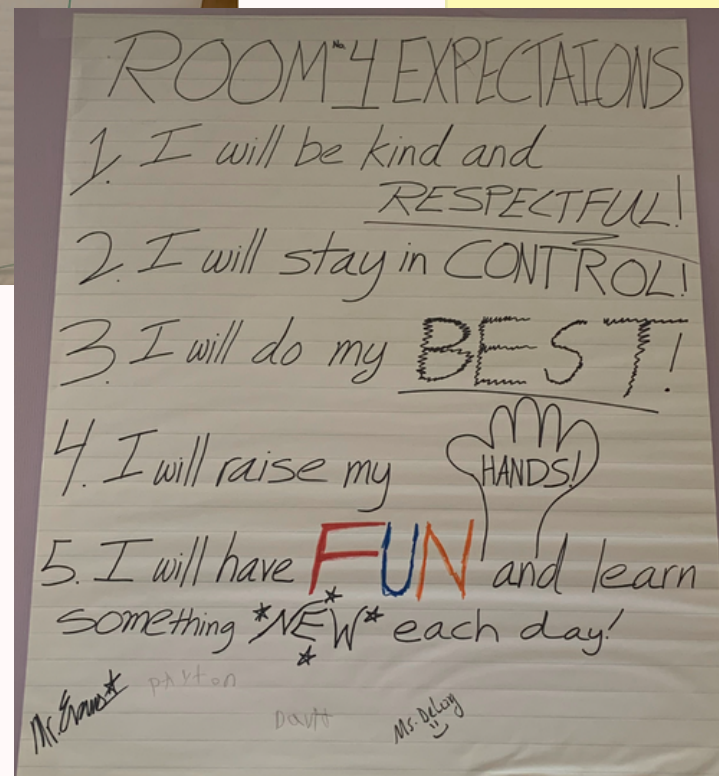 ROOM No. 4 EXPECTAIONS
1. I will be kind and
RESPECTFUL!
2. I will stay in CONTROL!
3. I will do my BEST!
4. I will raise my HANDS!
5. I will have FUN and learn
something *NEW* each day!
Mr. Evans payton
David Ms. DeLong